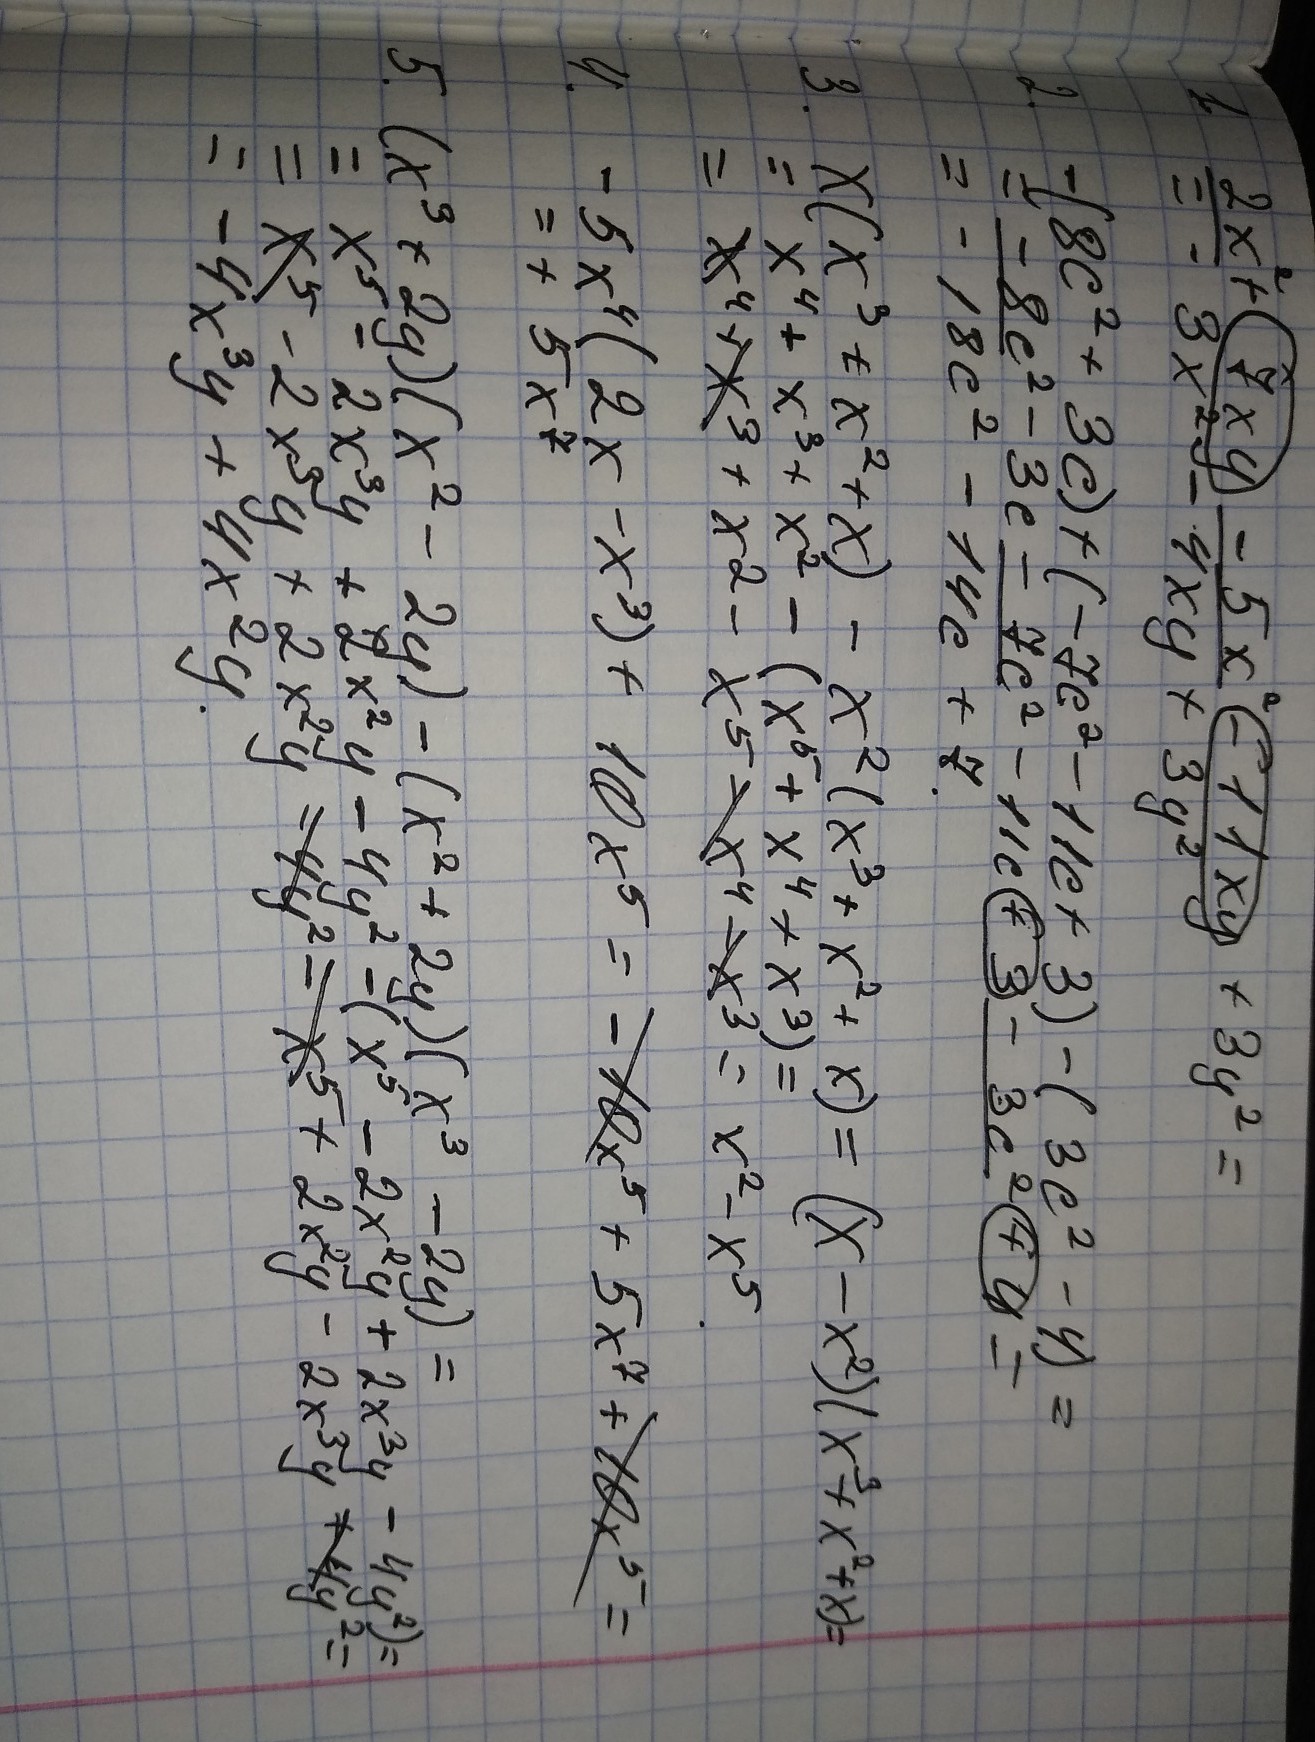 1. 2x² + 7xy - 5x² - 11xy + 3y² =
= - 3x² - 4xy + 3y²
2. -(8c² + 3c) + (-7c² - 11c + 3) - (3c² - 4) =
= - 8c² - 3c - 7c² - 11c + 3 - 3c² + 4 =
= - 18c² - 14c + 7.
3. x(x³ + x² + x) - x²(x³ + x² + x) = (x - x²)(x³ + x² + x) =
= x⁴ + x³ + x² - (x⁵ + x⁴ + x³) =
= x⁴ + x³ + x² - x⁵ - x⁴ - x³ = x² - x⁵.
4. - 5x⁴(2x - x³) + 10x⁵ = - 10x⁵ + 5x⁷ + 10x⁵ =
= + 5x⁷
5. (x³ + 2y)(x² - 2y) - (x² + 2y)(x³ - 2y) =
= x⁵ - 2x³y + 2x²y - 4y² - (x⁵ - 2x²y + 2x³y - 4y²) =
= x⁵ - 2x³y + 2x²y - 4y² - x⁵ + 2x²y - 2x³y + 4y² =
= - 4x³y + 4x²y.